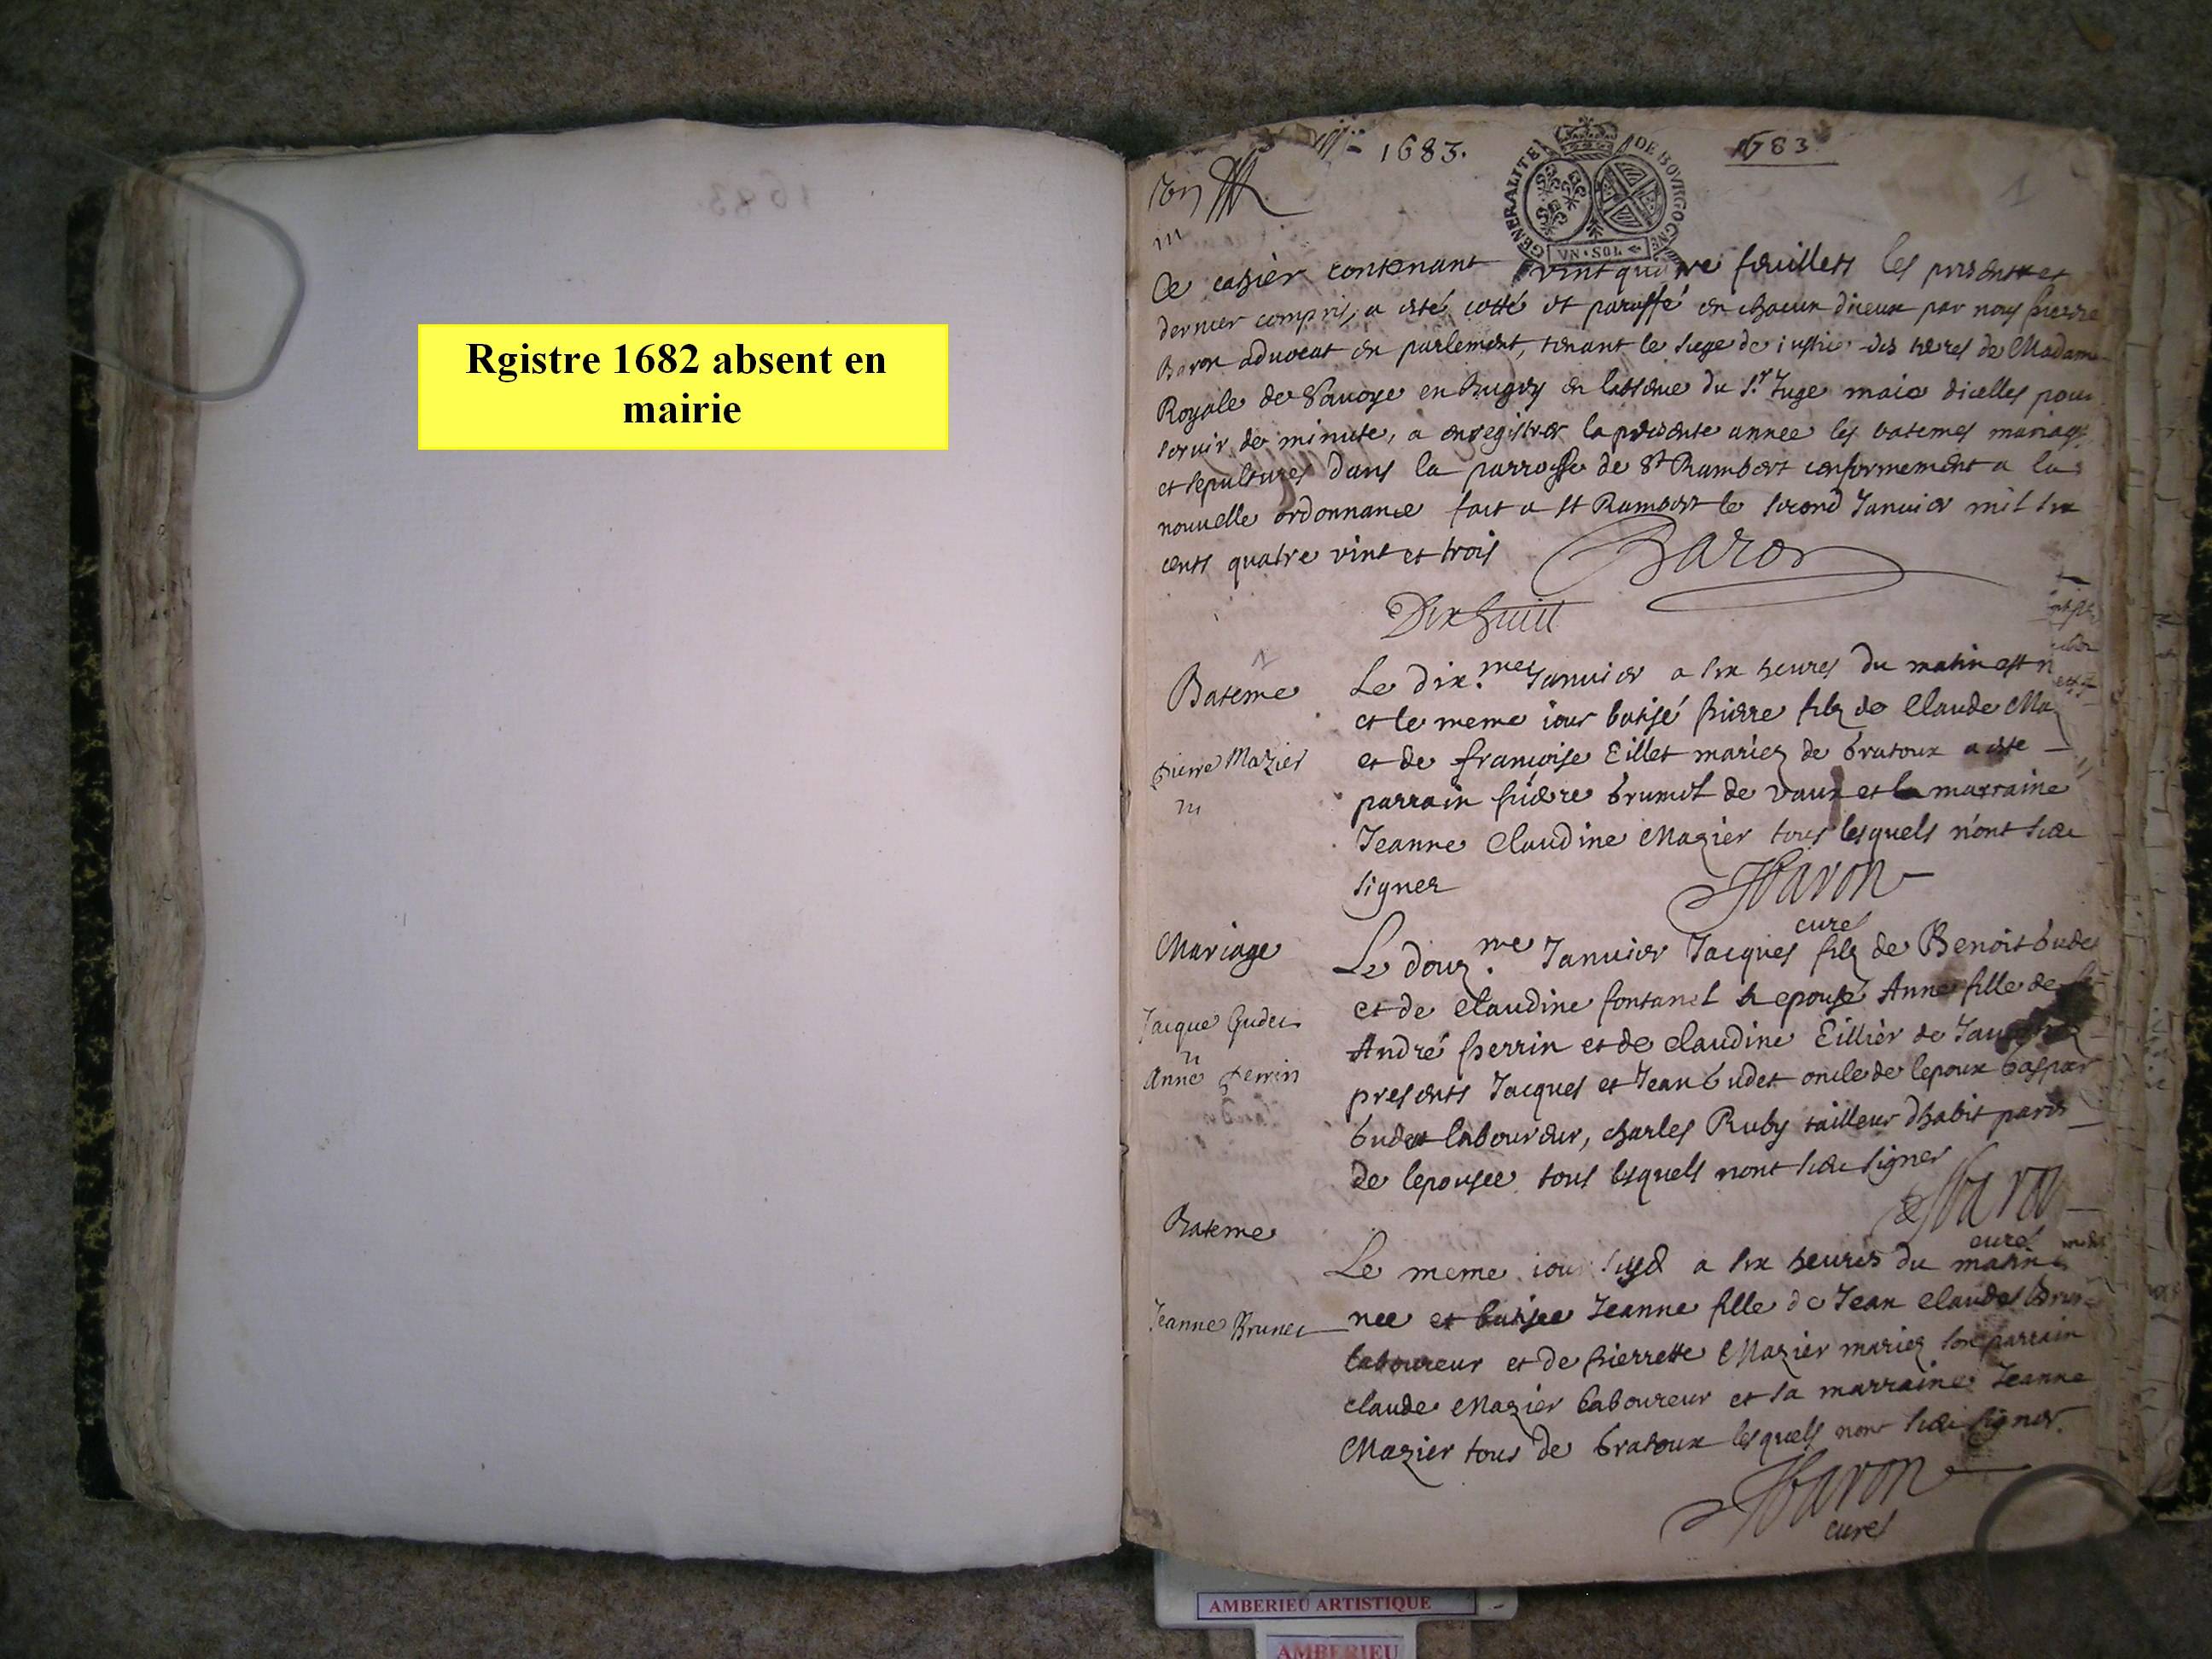 Rgistre 1682 absent en
mairie
1683.
1683
GENERALITE DE BOVRGOGNE
VN·SOL
Ce cahier contenant vint quatre feuillets les present et
dernier compris, a esté cotté et paraffé en chacun diceux par nous pierre
Baron advocat en parlement, tenant le siege de justice des terres de Madame
Royale de Savoye en Bugey en labsence du Sr. Juge maie dicelles pour
servir de minute, a enregistrer la presente annee les batemes mariag.
et sepultures dans la parroisse de St Rambert conformement a la
nouvelle ordonnance fait a St Rambert le second Janvier mil six
cents quatre vint et trois Baron
Dixhuit
Bateme
Le dix.me Janvier a six heures du matin est n
et le meme iour batisé pierre filz de Claude Ma
pierre Mazier
et de francoise Eillet mariez de bratoux a este
parrain pierre brunet de vaux et la marraine
Jeanne Claudine Mazier tous lesquels n'ont sceu
signer Baron
curé
Mariage
Le douz.me Janvier Jacques filz de Benoit budet
et de Claudine fontanel a epousé Anne fille de
Jacque Budet
André perrin et de Claudine Eillier de
Anne perrin
presents Jacques et Jean budet oncle de lepoux gaspar
budet laboureur, charles Ruby tailleur dhabit parens
de lepousee tous lesquels nont sceu signer
Baron
curé
Bateme
Le meme iour susd a six heures du matin
Jeanne Brunet
nee et batisee Jeanne fille de Jean Claude brun
laboureur et de pierrette Mazier mariez son parrain
claude Mazier laboureur et sa marraine Jeanne
Mazier tous de bratoux lesquels nont sceu signer.
Baron
curé
AMBERIEU ARTISTIQUE
AMBERIEU